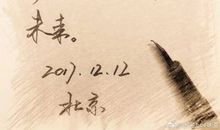 未来。
2017.12.12
北京